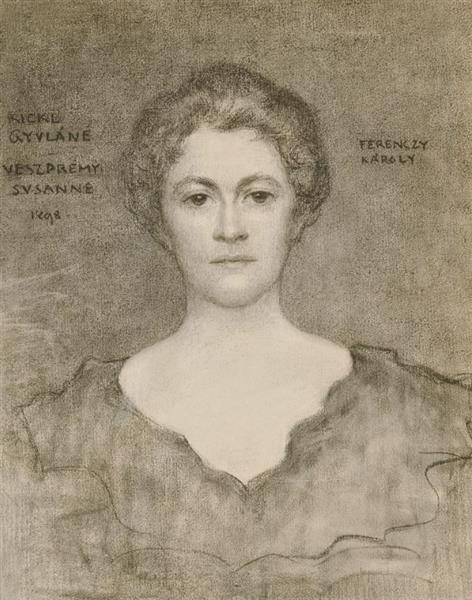 RICKL
GYULÁNÉ
VESZPRÉMY
SUSANNE
1898
FERENCZY
KÁROLY